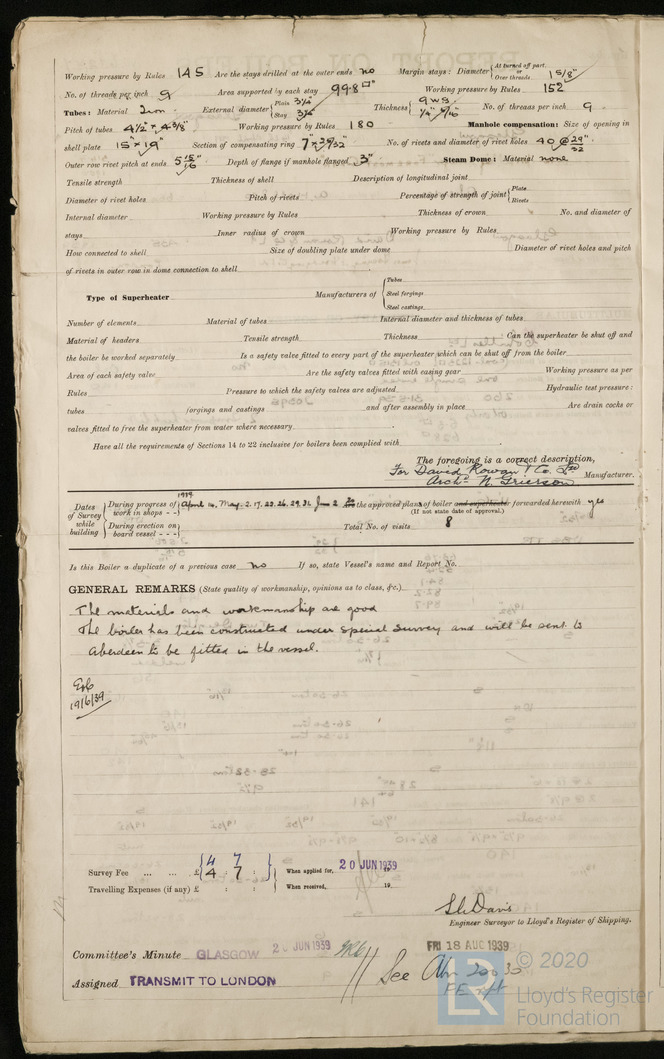 Working pressure by Rules 145 Are the stays drilled at the outer ends no Margin stays: Diameter { At turned off part, or Over threads 1 5/8"
No. of threads per inch 9 Area supported by each stay 998 □" Working pressure by Rules 152
Tubes: Material Iron External diameter { Plain 3¼" Stay 3¼" Thickness { 9 WG ¼" 5/16" No. of threads per inch 9
Pitch of tubes 4½" × 4 3/8" Working pressure by Rules 180 Manhole compensation: Size of opening in
shell plate 15" × 19" Section of compensating ring No. of rivets and diameter of rivet holes 40 @ 29"/32
Outer row rivet pitch at ends 5 15"/16 Depth of flange if manhole flanged 3" Steam Dome: Material none
Tensile strength Thickness of shell Description of longitudinal joint
Diameter of rivet holes Pitch of rivets Percentage of strength of joint { Plate Rivets
Internal diameter Working pressure by Rules Thickness of crown No. and diameter of
stays Inner radius of crown Working pressure by Rules
How connected to shell Size of doubling plate under dome Diameter of rivet holes and pitch
of rivets in outer row in dome connection to shell
Type of Superheater Manufacturers of { Tubes Steel forgings Steel castings
Number of elements Material of tubes Internal diameter and thickness of tubes
Material of headers Tensile strength Thickness Can the superheater be shut off and
the boiler be worked separately Is a safety valve fitted to every part of the superheater which can be shut off from the boiler
Area of each safety valve Are the safety valves fitted with easing gear Working pressure as per
Rules Pressure to which the safety valves are adjusted Hydraulic test pressure:
tubes forgings and castings and after assembly in place Are drain cocks or
valves fitted to free the superheater from water where necessary
Have all the requirements of Sections 14 to 22 inclusive for boilers been complied with
The foregoing is a correct description,
For David Rowan & Co. Ltd
Archd. N. Grierson Manufacturer.
Dates of Survey while building { During progress of work in shops - - } 1939 April 14, May 2. 17. 23. 26. 29. 31 June 2 Are the approved plans of boiler and superheater forwarded herewith yes
(If not state date of approval.)
During erection on board vessel - - - } Total No. of visits 8
Is this Boiler a duplicate of a previous case no If so, state Vessel's name and Report No.
GENERAL REMARKS (State quality of workmanship, opinions as to class, &c.)
The materials and workmanship are good
The boiler has been constructed under special survey and will be sent to
Aberdeen to be fitted in the vessel.
19/6/39
4 7
Survey Fee ... ... £ 4 : 7 : When applied for, 20 JUN 1939 19
Travelling Expenses (if any) £ : : When received, 19
S. Davis
Engineer Surveyor to Lloyd's Register of Shipping.
Committee's Minute GLASGOW 20 JUN 1939 FRI 18 AUG 1939
Assigned TRANSMIT TO LONDON See Abn
FE rpt
LR © 2020
Lloyd's Register
Foundation